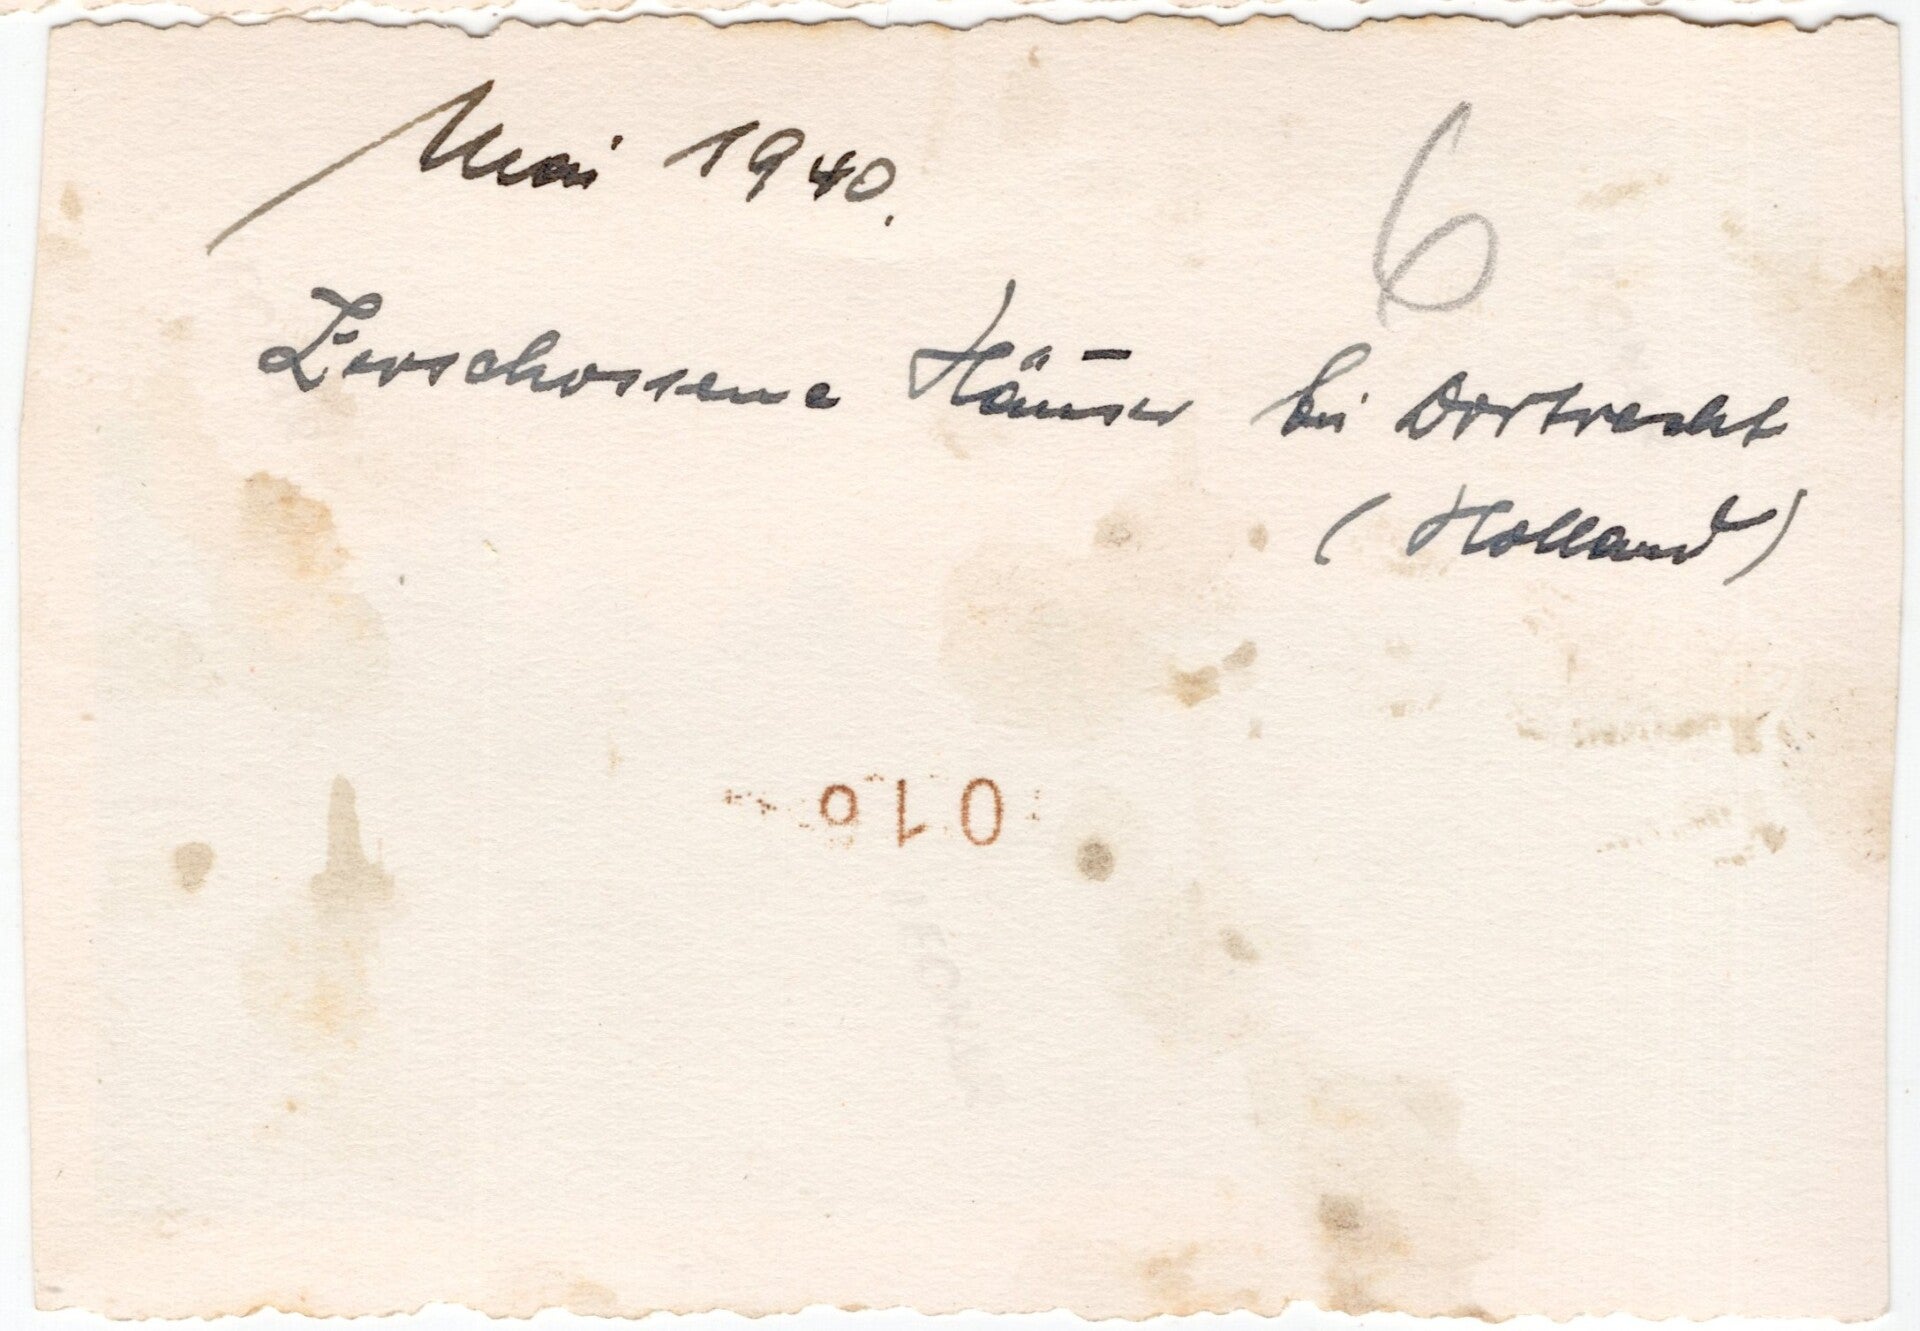 Mai 1940.
6
Zerschossene Häuser bei Dortrecht
(Holland)